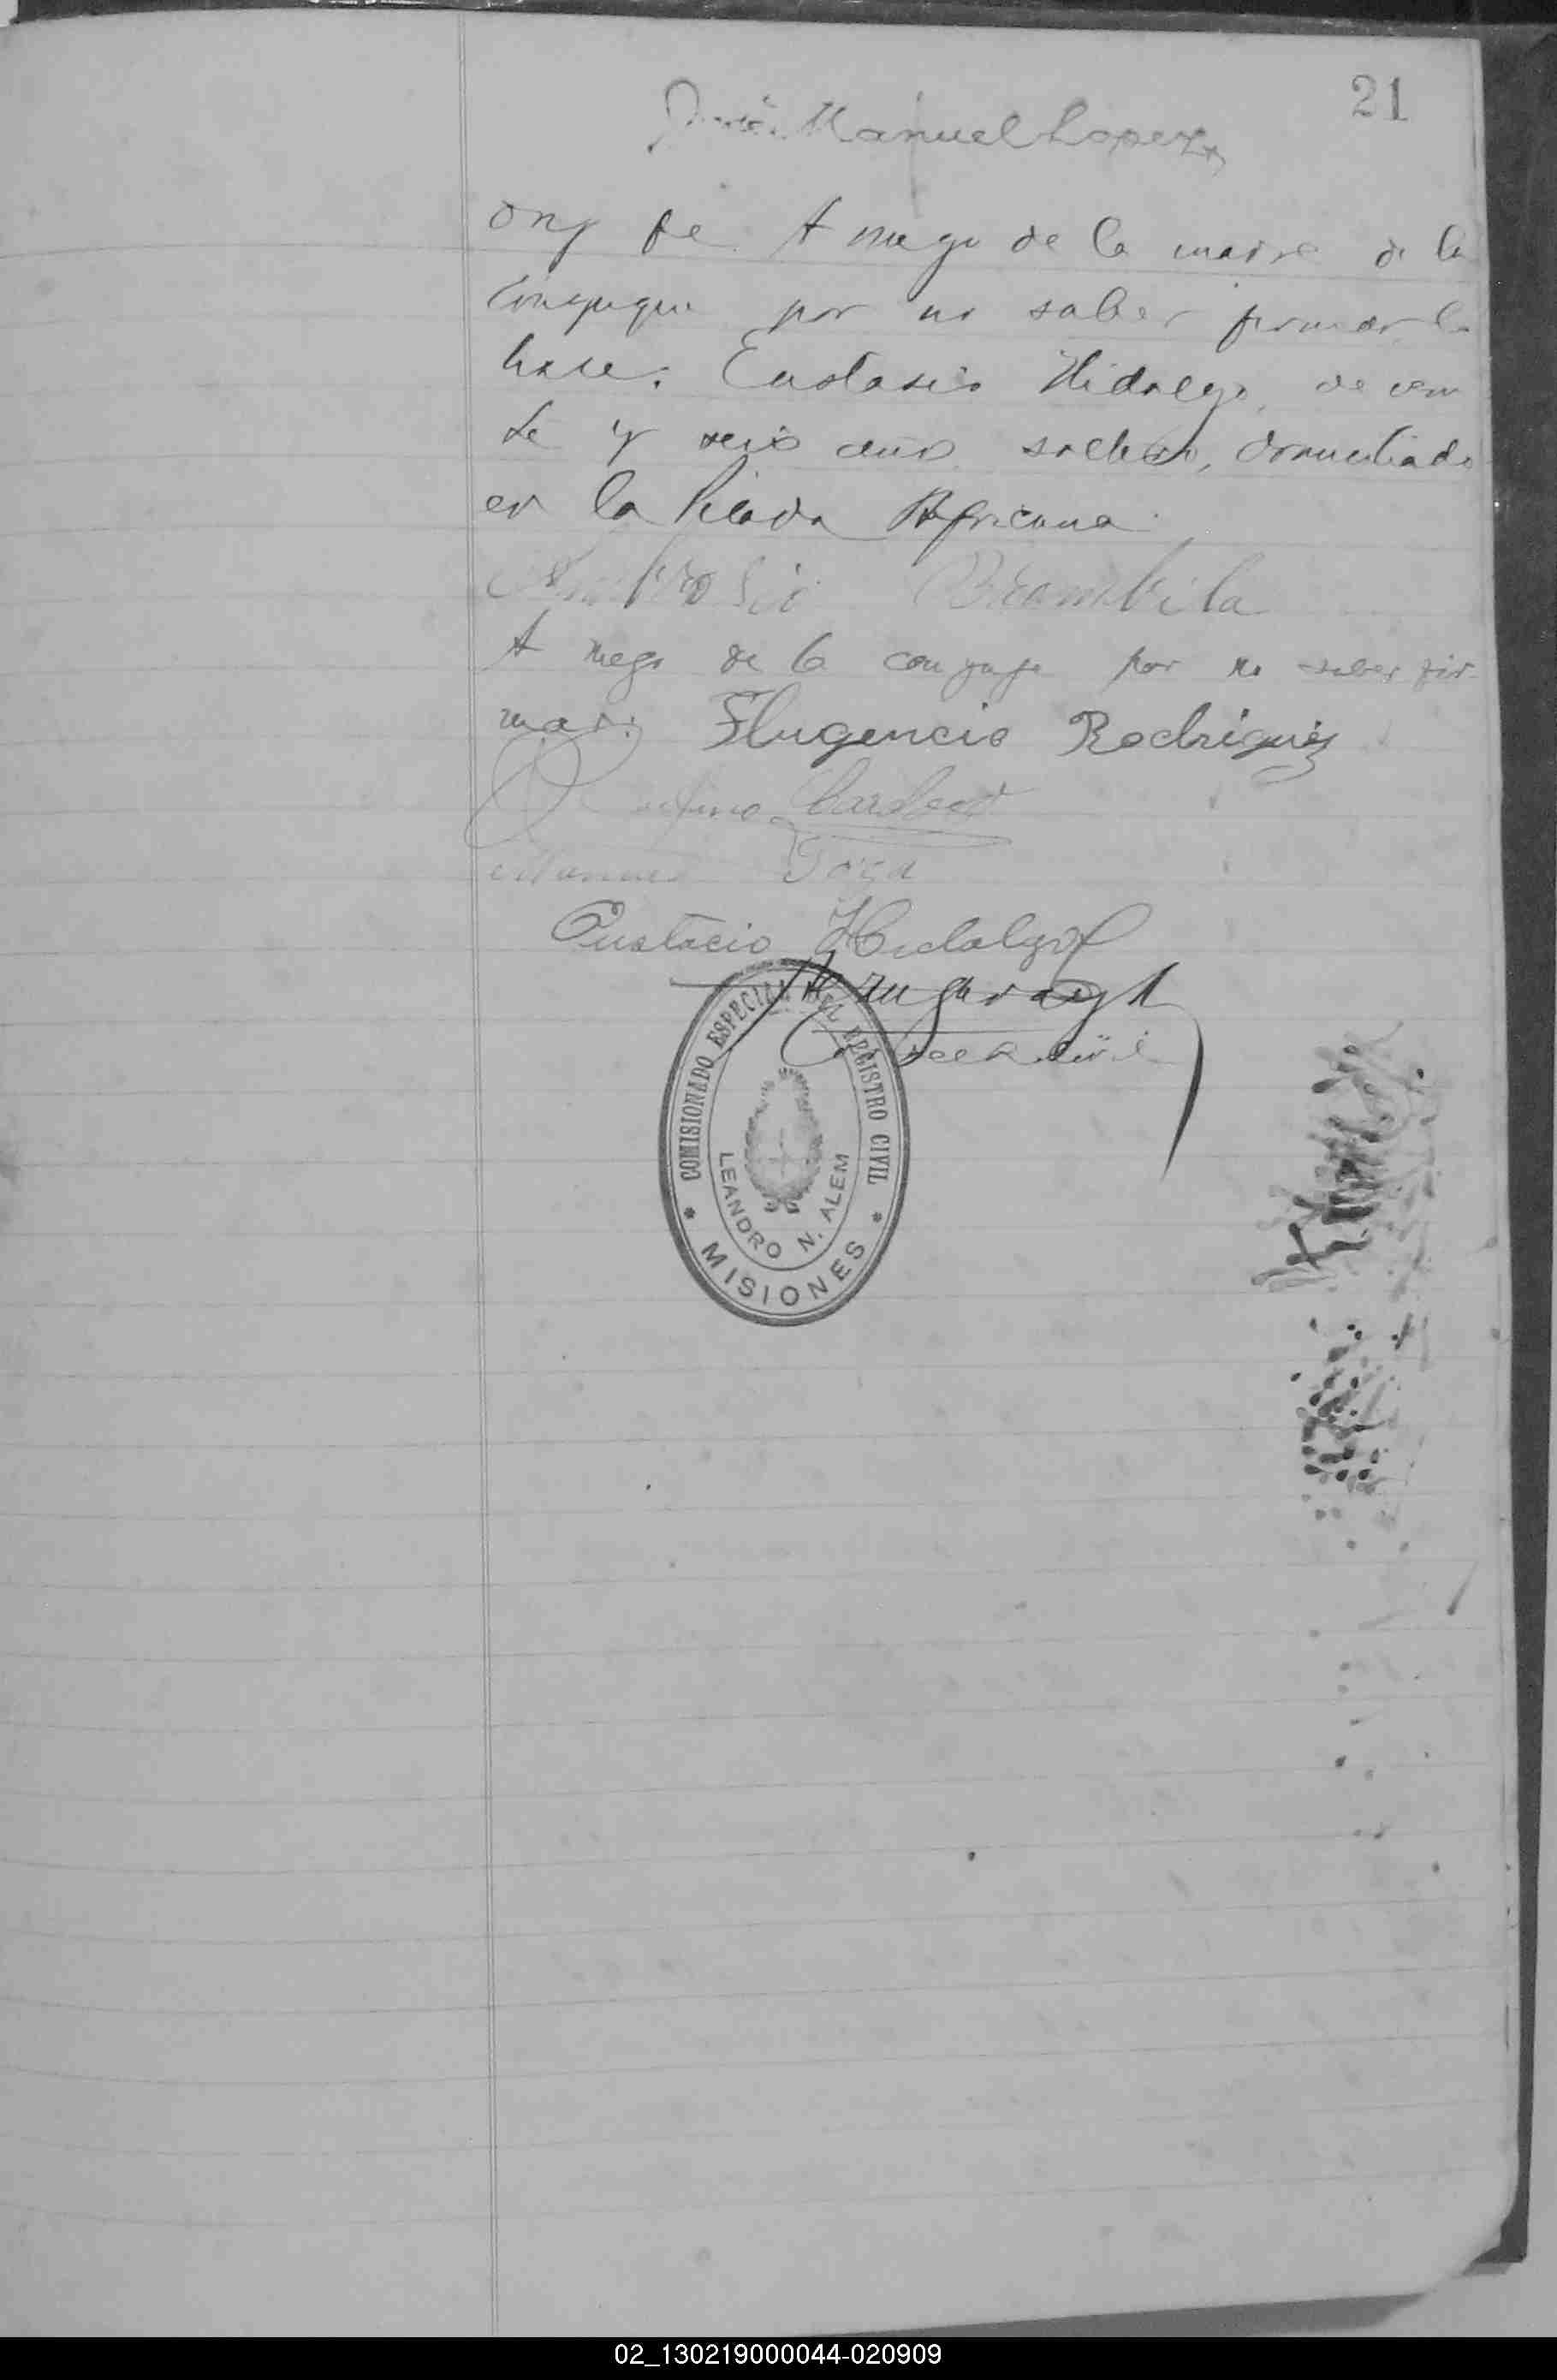 21
Manuel Lopez
doy fe. A ruego de la madre de la
conyuge por no saber firmar lo
hace: Eustasio Hidalgo, de vein
te y seis años soltero, domiciliado
en la Picada Africana.
Ambrosio Brambila
A ruego de la conyuge por no saber fir-
mar: Flugencio Rodriguez
Cardozo
Manuel
Eustacio Hidalgo
COMISIONADO ESPECIAL DEL REGISTRO CIVIL
LEANDRO N. ALEM
* MISIONES *
02_130219000044-020909